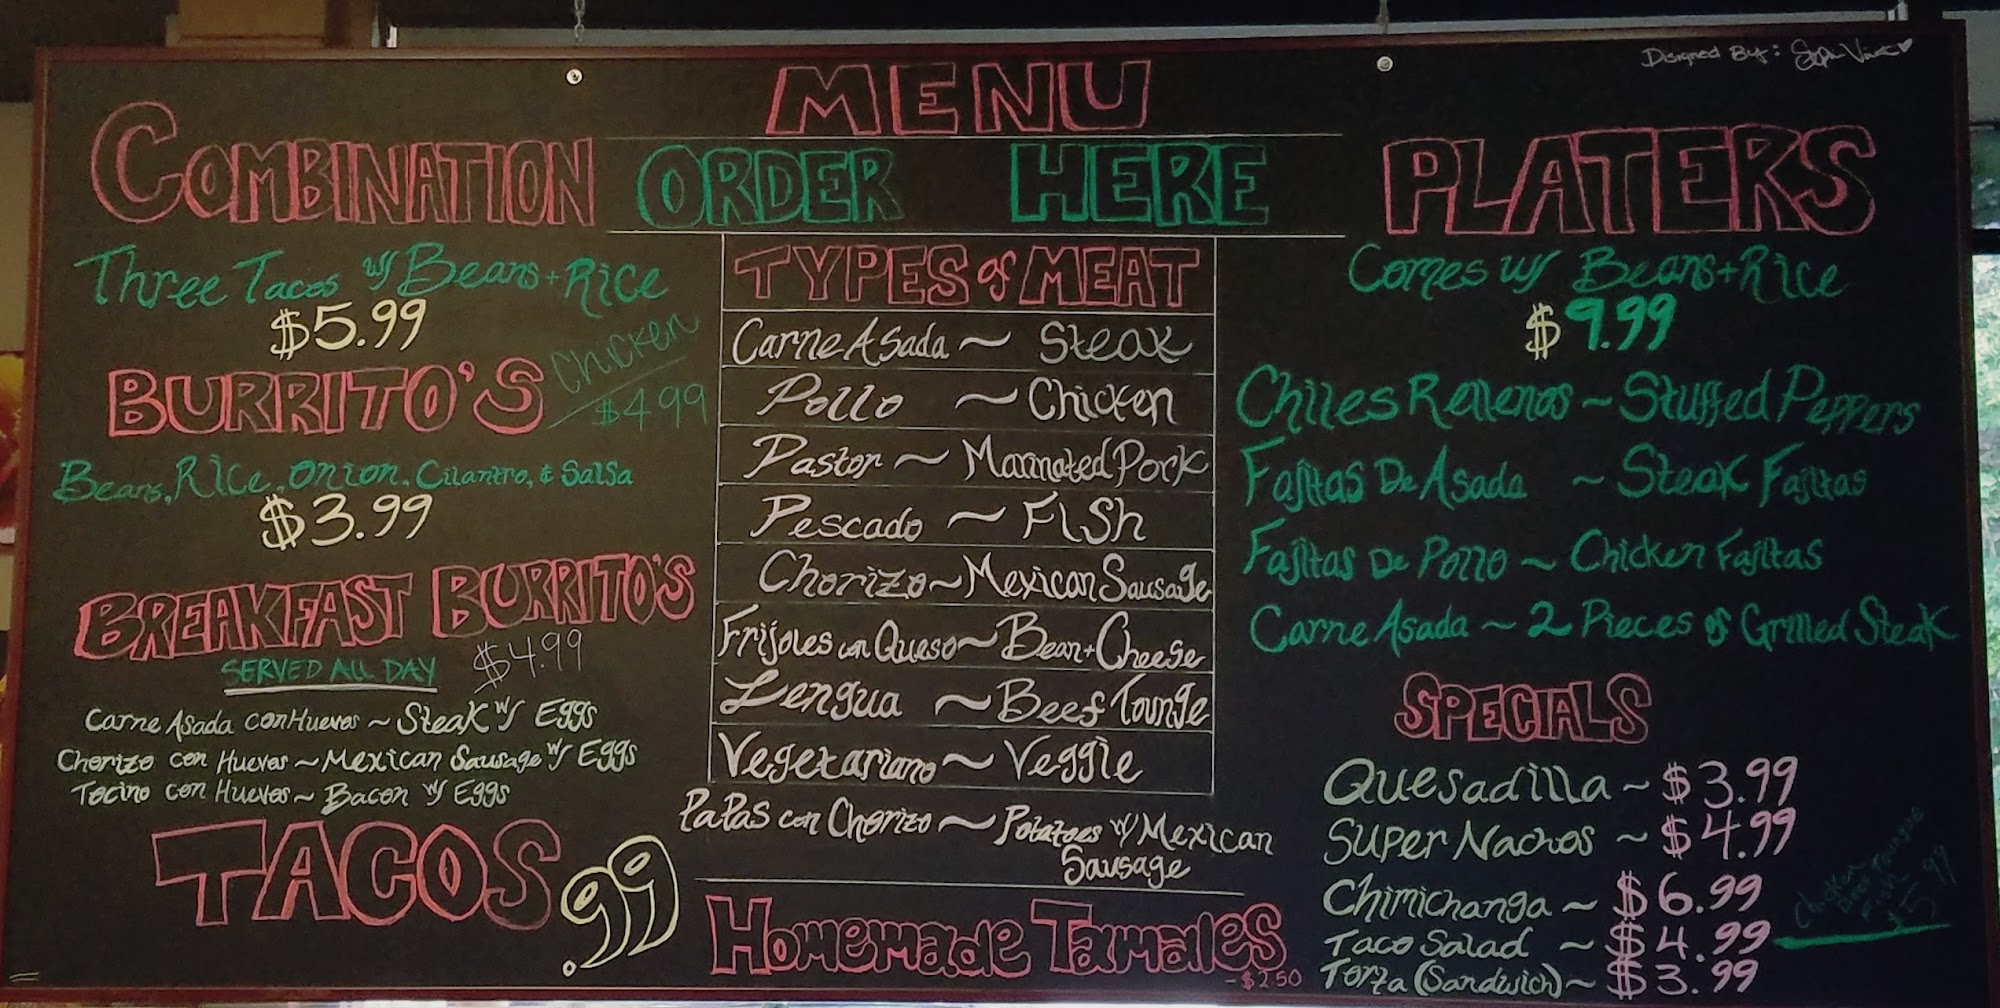 Designed By:
MENU
ORDER HERE
COMBINATION
Three Tacos w/ Beans + Rice
$5.99
BURRITO'S
Chicken
$4.99
Beans, Rice, Onion, Cilantro, & Salsa
$3.99
BREAKFAST BURRITO'S
SERVED ALL DAY
$4.99
Carne Asada con Huevos ~ Steak w/ Eggs
Chorizo con Huevos ~ Mexican Sausage w/ Eggs
Tocino con Huevos ~ Bacon w/ Eggs
TACOS .99
TYPES of MEAT
Carne Asada ~ Steak
Pollo ~ Chicken
Pastor ~ Marinated Pork
Pescado ~ Fish
Chorizo ~ Mexican Sausage
Frijoles con Queso ~ Bean + Cheese
Lengua ~ Beef Tounge
Vegetariano ~ Veggie
Papas con Chorizo ~ Potatoes w/ Mexican
Sausage
Homemade Tamales
- $2.50
PLATERS
Comes w/ Beans + Rice
$9.99
Chiles Rellenos ~ Stuffed Peppers
Fajitas De Asada ~ Steak Fajitas
Fajitas De Pollo ~ Chicken Fajitas
Carne Asada ~ 2 Pieces of Grilled Steak
SPECIALS
Quesadilla ~ $3.99
Super Nachos ~ $4.99
Chimichanga ~ $6.99
Taco Salad ~ $4.99
Torta (Sandwich) ~ $3.99
Chicken
Fish
$5.99